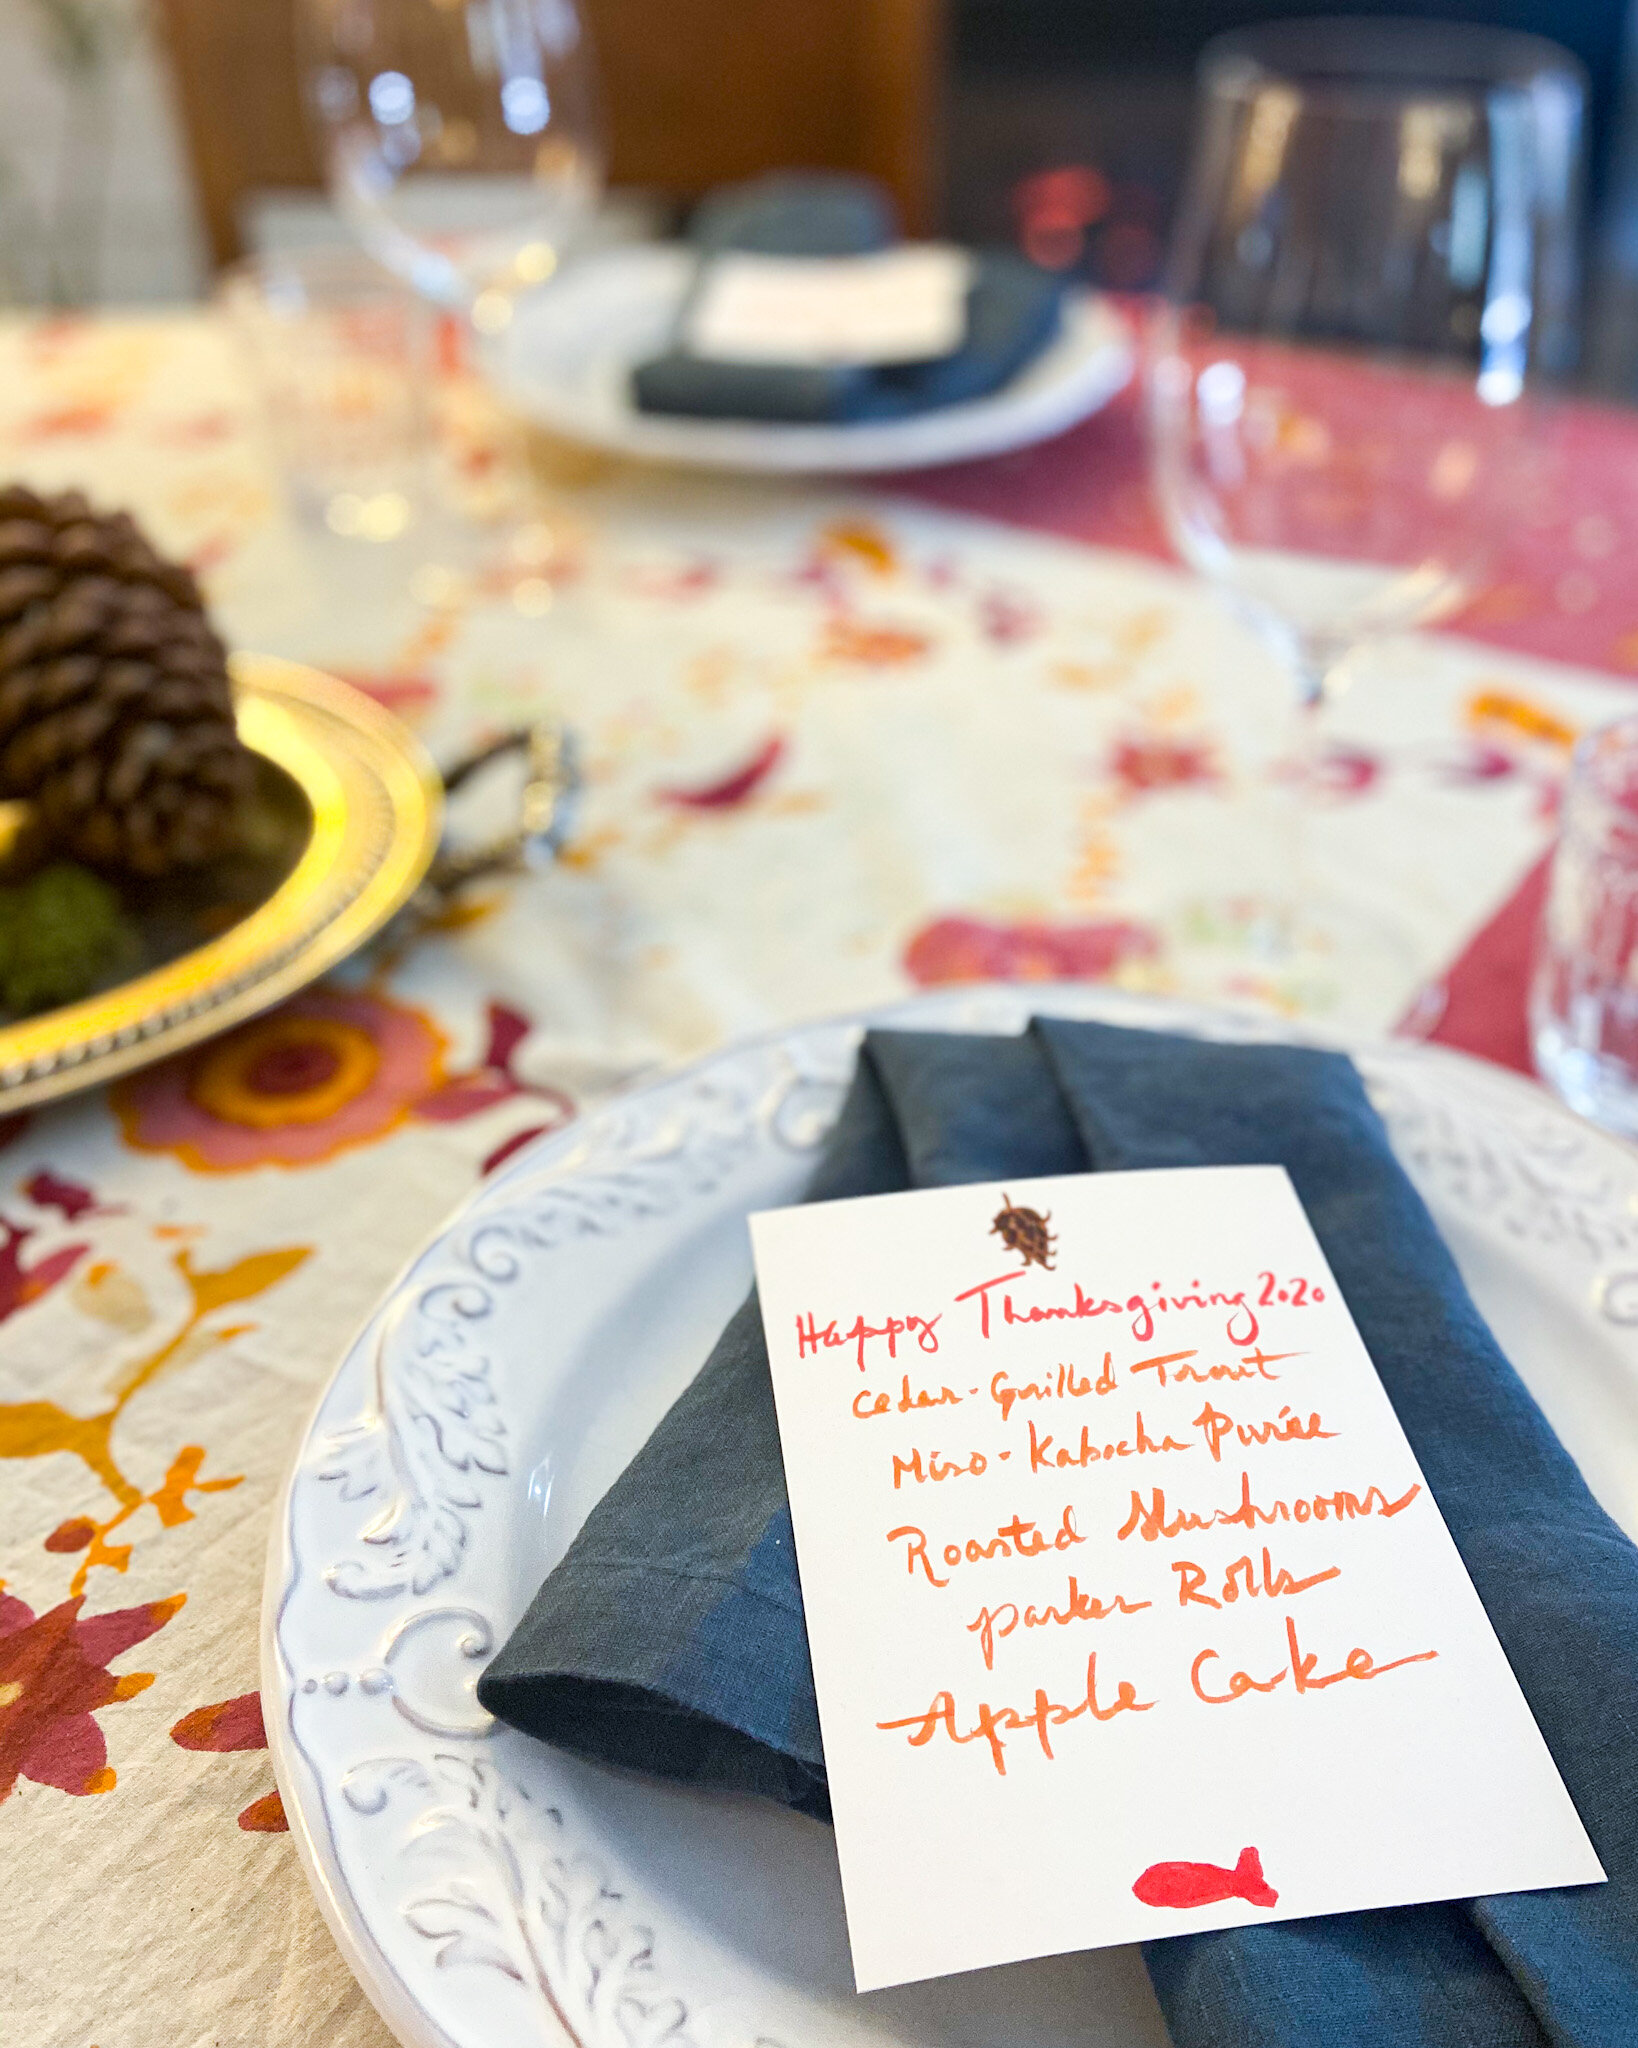 Happy Thanksgiving 2020
Cedar-Grilled Trout
Miso-Kabocha Purée
Roasted Mushrooms
Parker Rolls
Apple Cake